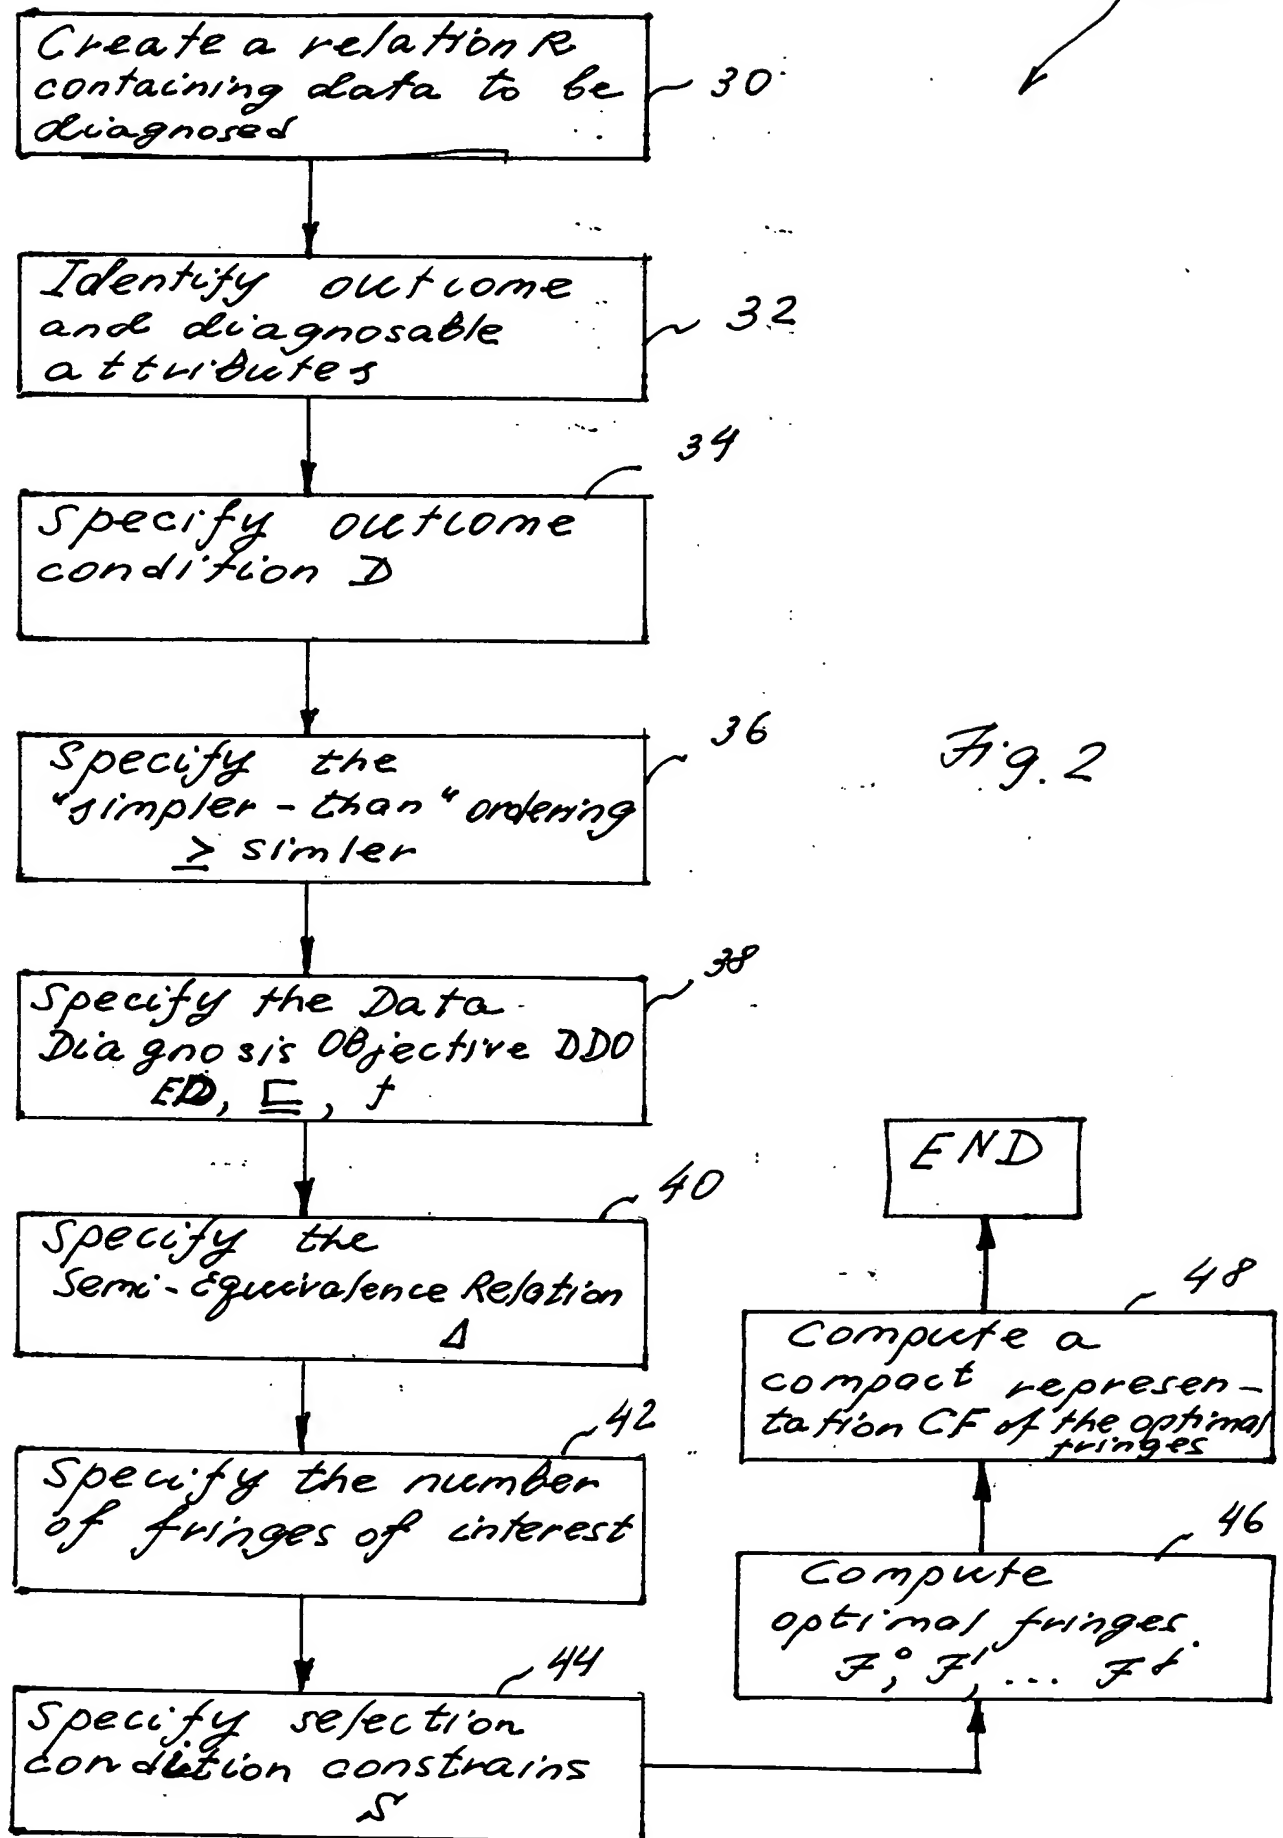 Create a relation R
containing data to be
diagnosed
30
Identify outcome
and diagnosable
attributes
32
34
Specify outcome
condition D
36
Specify the
"simpler-than" ordering
≥ simler
Fig. 2
38
Specify the Data
Diagnosis Objective DDO
ED, ⊑, f
40
Specify the
Semi-Equivalence Relation
Δ
42
Specify the number
of fringes of interest
44
Specify selection
condition constrains
S
46
Compute
optimal fringes
F⁰, F¹, ... Fᶠ
48
Compute a
compact represen-
tation CF of the optimal
fringes
END